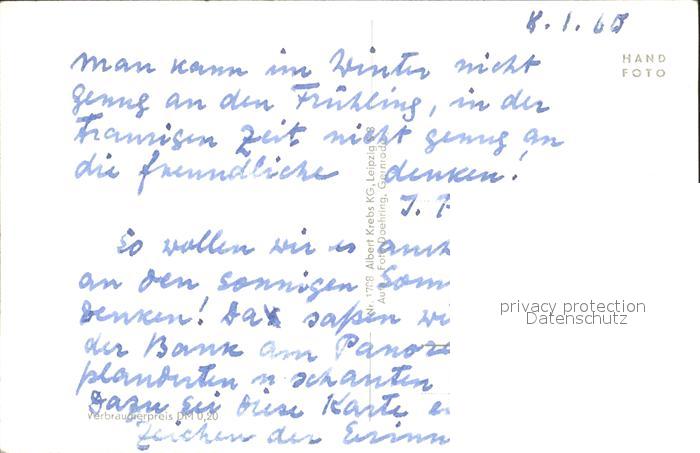 8.1.60
HAND
FOTO
man kann im Winter nicht
genug an den Frühling, in der
traurigen Zeit nicht genug an
die freundliche denken!
J. P
So wollen wir es auch
an den sonnigen Som
denken! Da saßen wi
der Bank am Panora
plauderten u schauten
Dazu sei diese Karte e
Zeichen der Erinn
Verbraucherpreis DM 0,20
Nr. 1798 Albert Krebs KG, Leipzig
Foto Doehring, Gernrode
privacy protection
Datenschutz